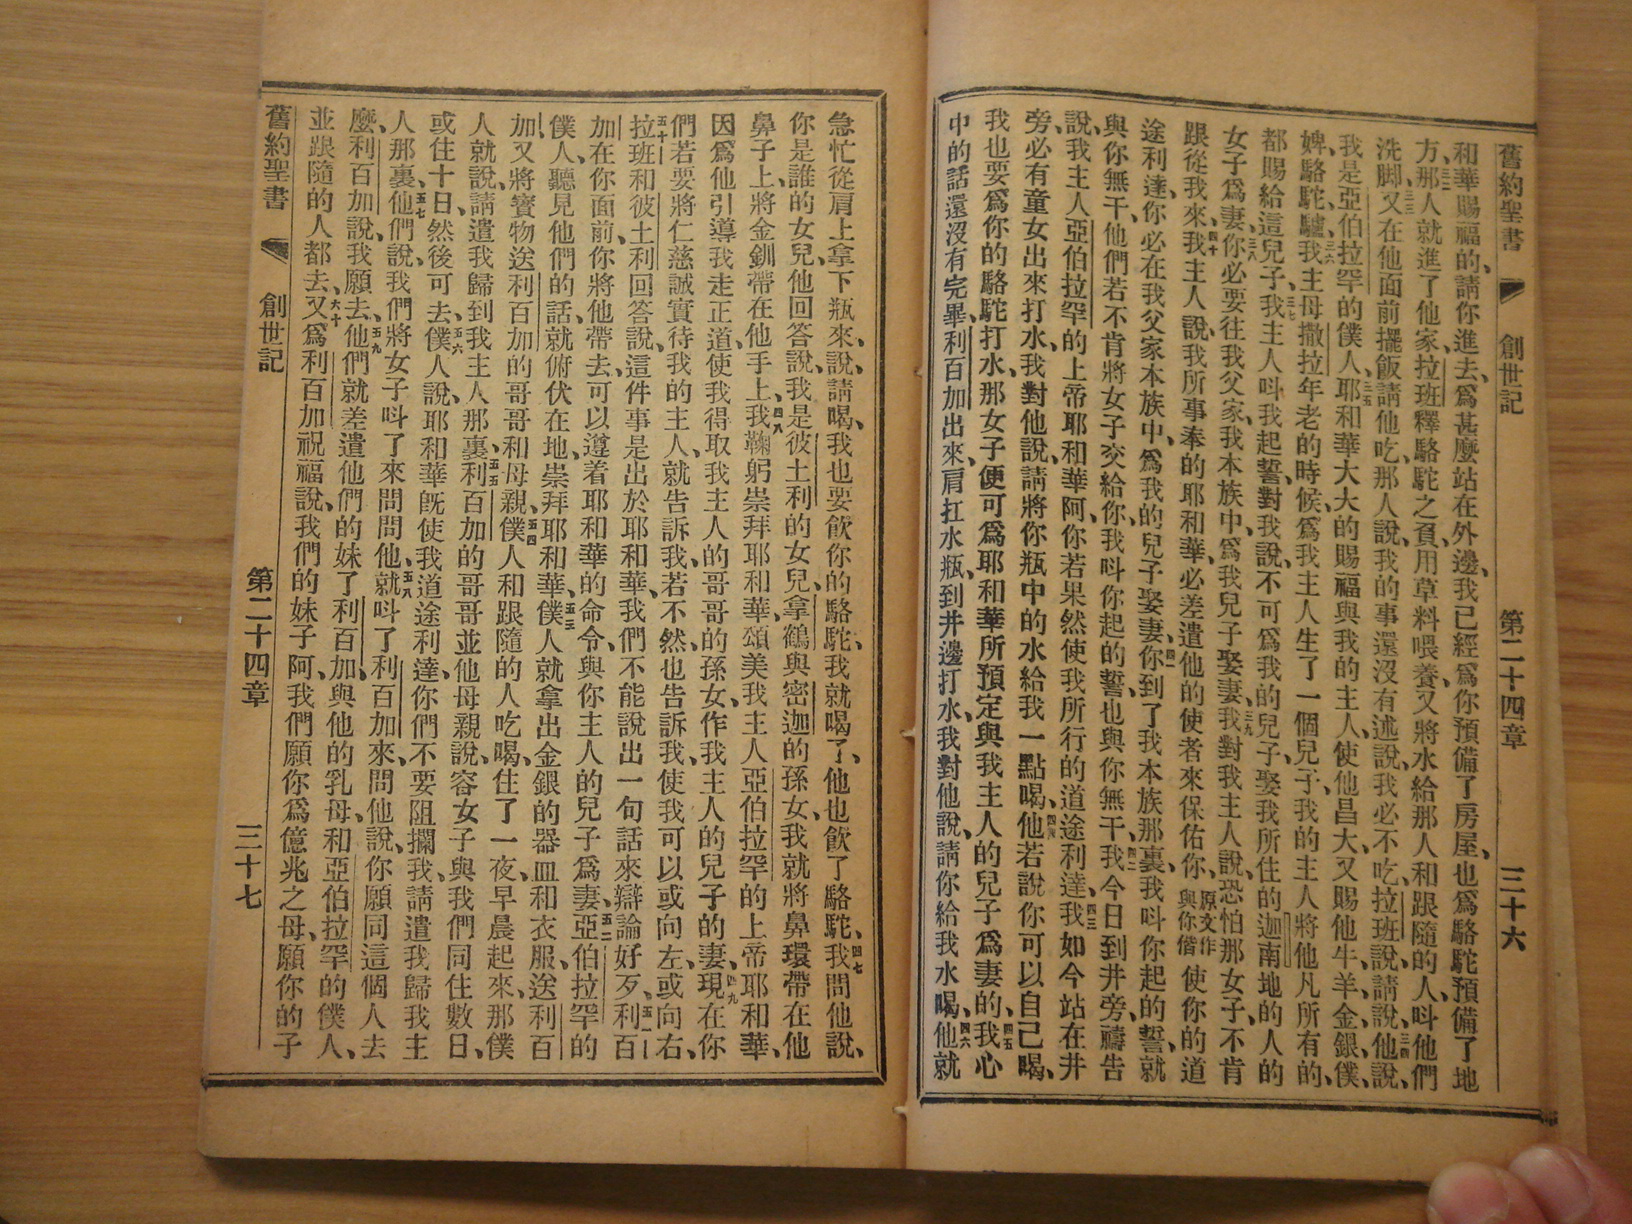 舊約聖書 創世記 第二十四章 三十六
和華賜福的、請你進去、爲甚麼站在外邊、我已經爲你預備了房屋、也爲駱駝預備了地
方、三二那人就進了他家、拉班釋駱駝之負、用草料喂養、又將水給那人和跟隨的人、呌他們
洗脚、三三又在他面前擺飯請他吃、那人說、我的事還沒有述說、我必不吃、拉班說、請說、三四他說、
我是亞伯拉罕的僕人、三五耶和華大大的賜福與我的主人、使他昌大、又賜他牛、羊、金、銀、僕、
婢、駱駝、驢、三六我主母撒拉年老的時候、爲我主人生了一個兒子、我的主人將他凡所有的、
都賜給這兒子、三七我主人呌我起誓、對我說、不可爲我的兒子、娶我所住的迦南地的人的
女子爲妻、三八你必要往我父家、我本族中、爲我兒子娶妻、三九我對我主人說、恐怕那女子、不肯
跟從我來、四十我主人說、我所事奉的耶和華、必差遣他的使者來保佑你、原文作與你偕使你的道
途利達、你必在我父家本族中、爲我的兒子娶妻、四一你到了我本族那裏、我呌你起的誓、就
與你無干、他們若不肯將女子交給你、我呌你起的誓、也與你無干、四二我今日到井旁、禱告
說、我主人亞伯拉罕的上帝耶和華阿、你若果然使我所行的道途利達、四三我如今站在井
旁、必有童女出來打水、我對他說、請將你瓶中的水給我一點喝、四四他若說你可以自己喝、
我也要爲你的駱駝打水、那女子便可爲耶和華所預定與我主人的兒子爲妻的、四五我心
中的話還沒有完畢、利百加出來、肩扛水瓶、到井邊打水、我對他說、請你給我水喝、四六他就
急忙從肩上拿下瓶來、說、請喝、我也要飲你的駱駝、我就喝了、他也飲了駱駝、四七我問他說、
你是誰的女兒、他回答說、我是彼土利的女兒、拿鶴與密迦的孫女、我就將鼻環帶在他
鼻子上、將金釧帶在他手上、四八我鞠躬崇拜耶和華、頌美我主人亞伯拉罕的上帝耶和華、
因爲他引導我走正道、使我得取我主人的哥哥的孫女、作我主人的兒子的妻、四九現在你
們若要將仁慈誠實待我的主人、就告訴我、若不然、也告訴我、使我可以或向左、或向右、
五十拉班和彼土利回答說、這件事是出於耶和華、我們不能說出一句話來辯論好歹、五一利百
加在你面前、你將他帶去、可以遵着耶和華的命令、與你主人的兒子爲妻、五二亞伯拉罕的
僕人、聽見他們的話、就俯伏在地、崇拜耶和華、五三僕人就拿出金銀的器皿和衣服、送利百
加、又將寶物送利百加的哥哥和母親、五四僕人和跟隨的人吃喝、住了一夜、早晨起來、那僕
人就說、請遣我歸到我主人那裏、五五利百加的哥哥並他母親說、容女子與我們同住數日、
或住十日、然後可去、五六僕人說、耶和華旣使我道途利達、你們不要阻攔我、請遣我歸我主
人那裏、五七他們說、我們將女子呌了來問問他、五八就呌了利百加來、問他說、你願同這個人去
麼、利百加說、我願去、五九他們就差遣他們的妹子利百加、與他的乳母、和亞伯拉罕的僕人、
並跟隨的人都去、六十又爲利百加祝福、說、我們的妹子阿、我們願你爲億兆之母、願你的子
舊約聖書 創世記 第二十四章 三十七